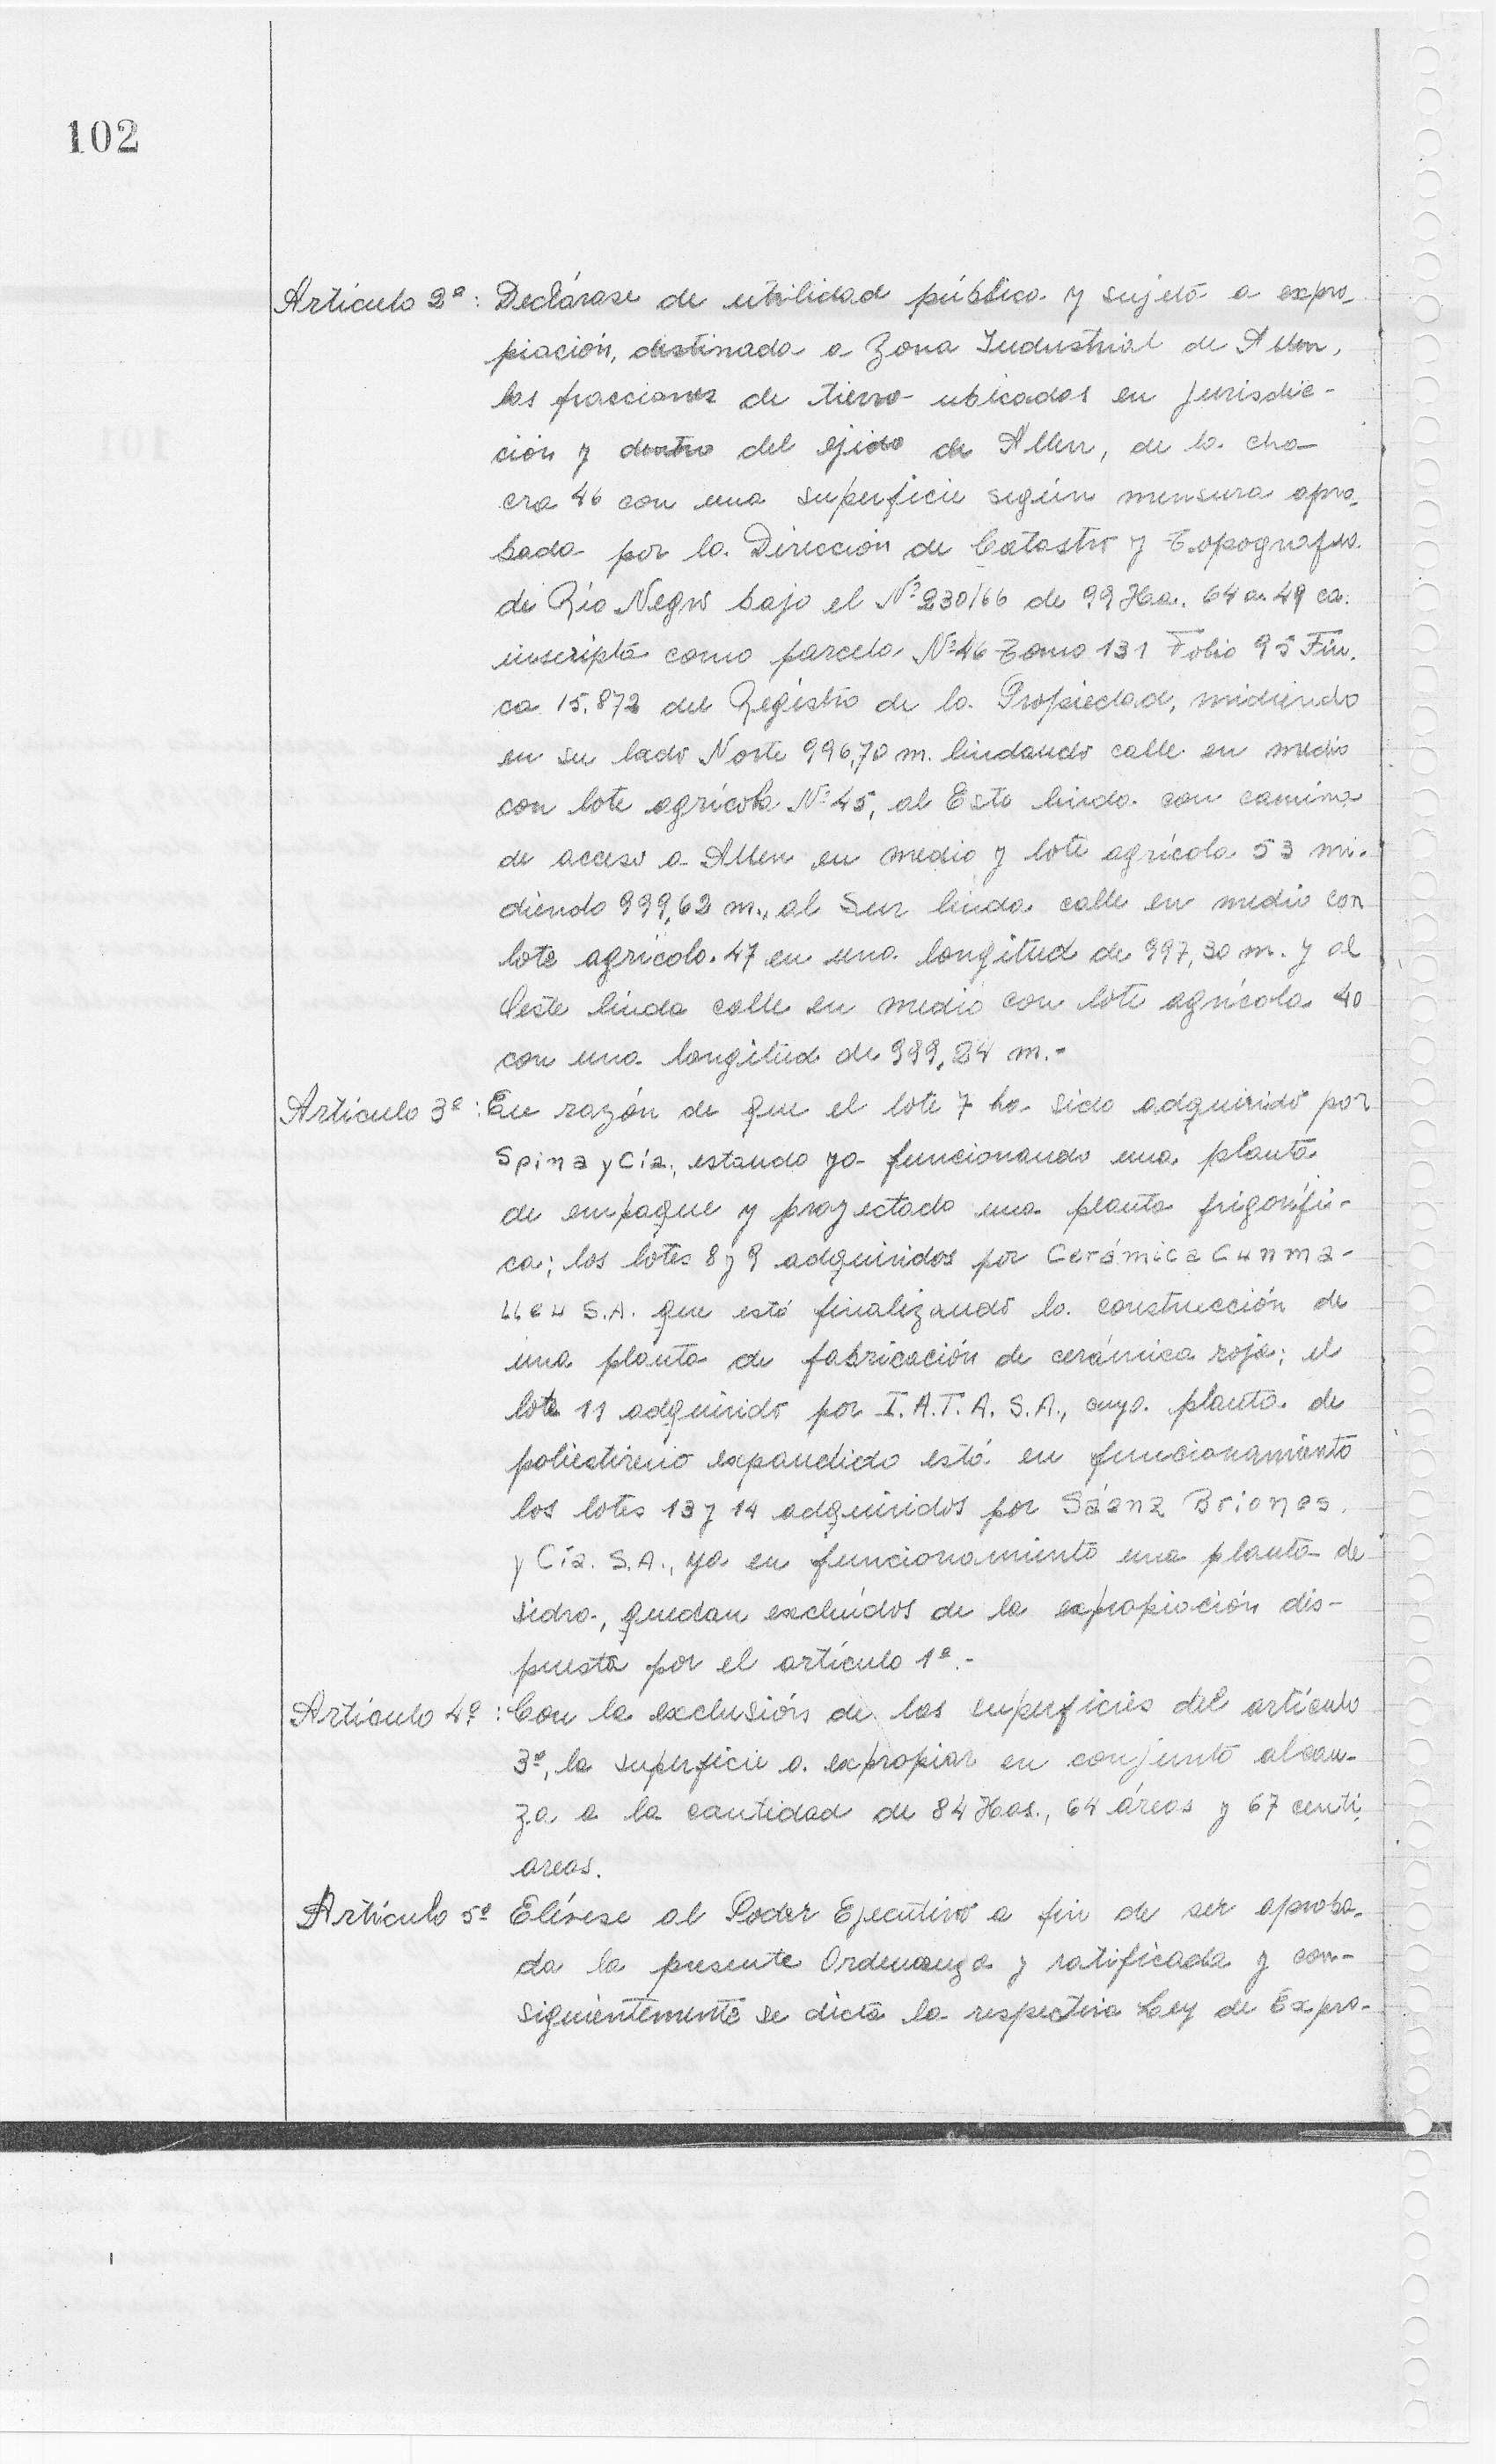 102
Artículo 2º: Declárase de utilidad pública y sujeta a expro-
piación, destinada a Zona Industrial de Allen,
las fracciones de tierra ubicadas en jurisdic-
ción y dentro del ejido de Allen, de la cha-
cra 46 con una superficie según mensura apro-
bada por la Dirección de Catastro y Topografía
de Río Negro bajo el Nº 230/66 de 99 Ha. 64 a. 49 ca.
inscripta como parcela Nº 46 Tomo 131 Folio 95 Fin-
ca 15.872 del Registro de la Propiedad, midiendo
en su lado Norte 996,70 m. lindando calle en medio
con lote agrícola Nº 45, al Este linda con camino
de acceso a Allen en medio y lote agrícola 53 mi-
diendo 999,62 m., al Sur linda calle en medio con
lote agrícola 47 en una longitud de 997,30 m. y al
Oeste linda calle en medio con lote agrícola 40
con una longitud de 999,24 m.-
Artículo 3º: En razón de que el lote 7 ha sido adquirido por
Spina y Cía., estando ya funcionando una planta
de empaque y proyectado una planta frigorífi-
ca; los lotes 8 y 9 adquiridos por Cerámica Cunma-
lleu S.A. que está finalizando la construcción de
una planta de fabricación de cerámica roja; el
lote 11 adquirido por I.A.T.A. S.A., cuya planta de
poliestireno expandido está en funcionamiento
los lotes 13 y 14 adquiridos por Sáenz Briones
y Cía. S.A., ya en funcionamiento una planta de
sidra, quedan excluídos de la expropiación dis-
puesta por el artículo 1º.-
Artículo 4º: Con la exclusión de las superficies del artículo
3º, la superficie a expropiar en conjunto alcan-
za a la cantidad de 84 Has., 64 áreas y 67 centi
areas.
Artículo 5º Elévese al Poder Ejecutivo a fin de ser aproba-
da la presente Ordenanza y ratificada y con-
siguientemente se dicta la respectiva Ley de Expro-